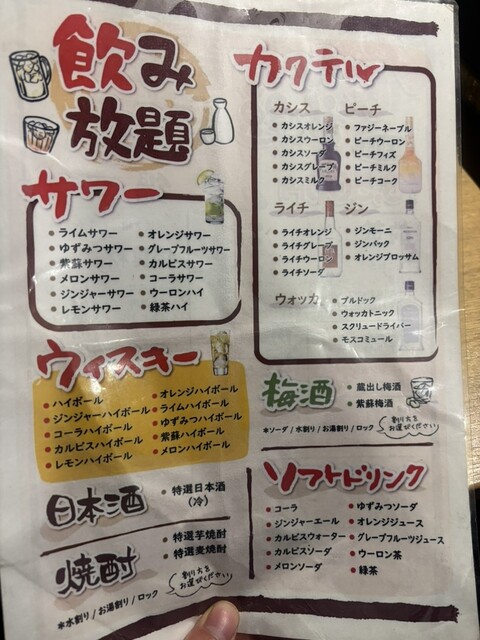 飲み
放題
サワー
ライムサワー
ゆずみつサワー
紫蘇サワー
メロンサワー
ジンジャーサワー
レモンサワー
オレンジサワー
グレープフルーツサワー
カルピスサワー
コーラサワー
ウーロンハイ
緑茶ハイ
ウィスキー
ハイボール
ジンジャーハイボール
コーラハイボール
カルピスハイボール
レモンハイボール
オレンジハイボール
ライムハイボール
ゆずみつハイボール
紫蘇ハイボール
メロンハイボール
日本酒
特選日本酒
(冷)
焼酎
特選芋焼酎
特選麦焼酎
割り方を
お選びください
*水割り / お湯割り / ロック
カクテル
カシス
カシスオレンジ
カシスウーロン
カシスソーダ
カシスグレープ
カシスミルク
ピーチ
ファジーネーブル
ピーチウーロン
ピーチフィズ
ピーチミルク
ピーチコーク
ライチ
ライチオレンジ
ライチグレープ
ライチウーロン
ライチソーダ
ジン
ジンモーニ
ジンバック
オレンジブロッサム
ウォッカ
ブルドック
ウォッカトニック
スクリュードライバー
モスコミュール
梅酒
蔵出し梅酒
紫蘇梅酒
*ソーダ / 水割り / お湯割り / ロック
割り方を
お選びください
ソフトドリンク
コーラ
ジンジャーエール
カルピスウォーター
カルピスソーダ
メロンソーダ
ゆずみつソーダ
オレンジジュース
グレープフルーツジュース
ウーロン茶
緑茶